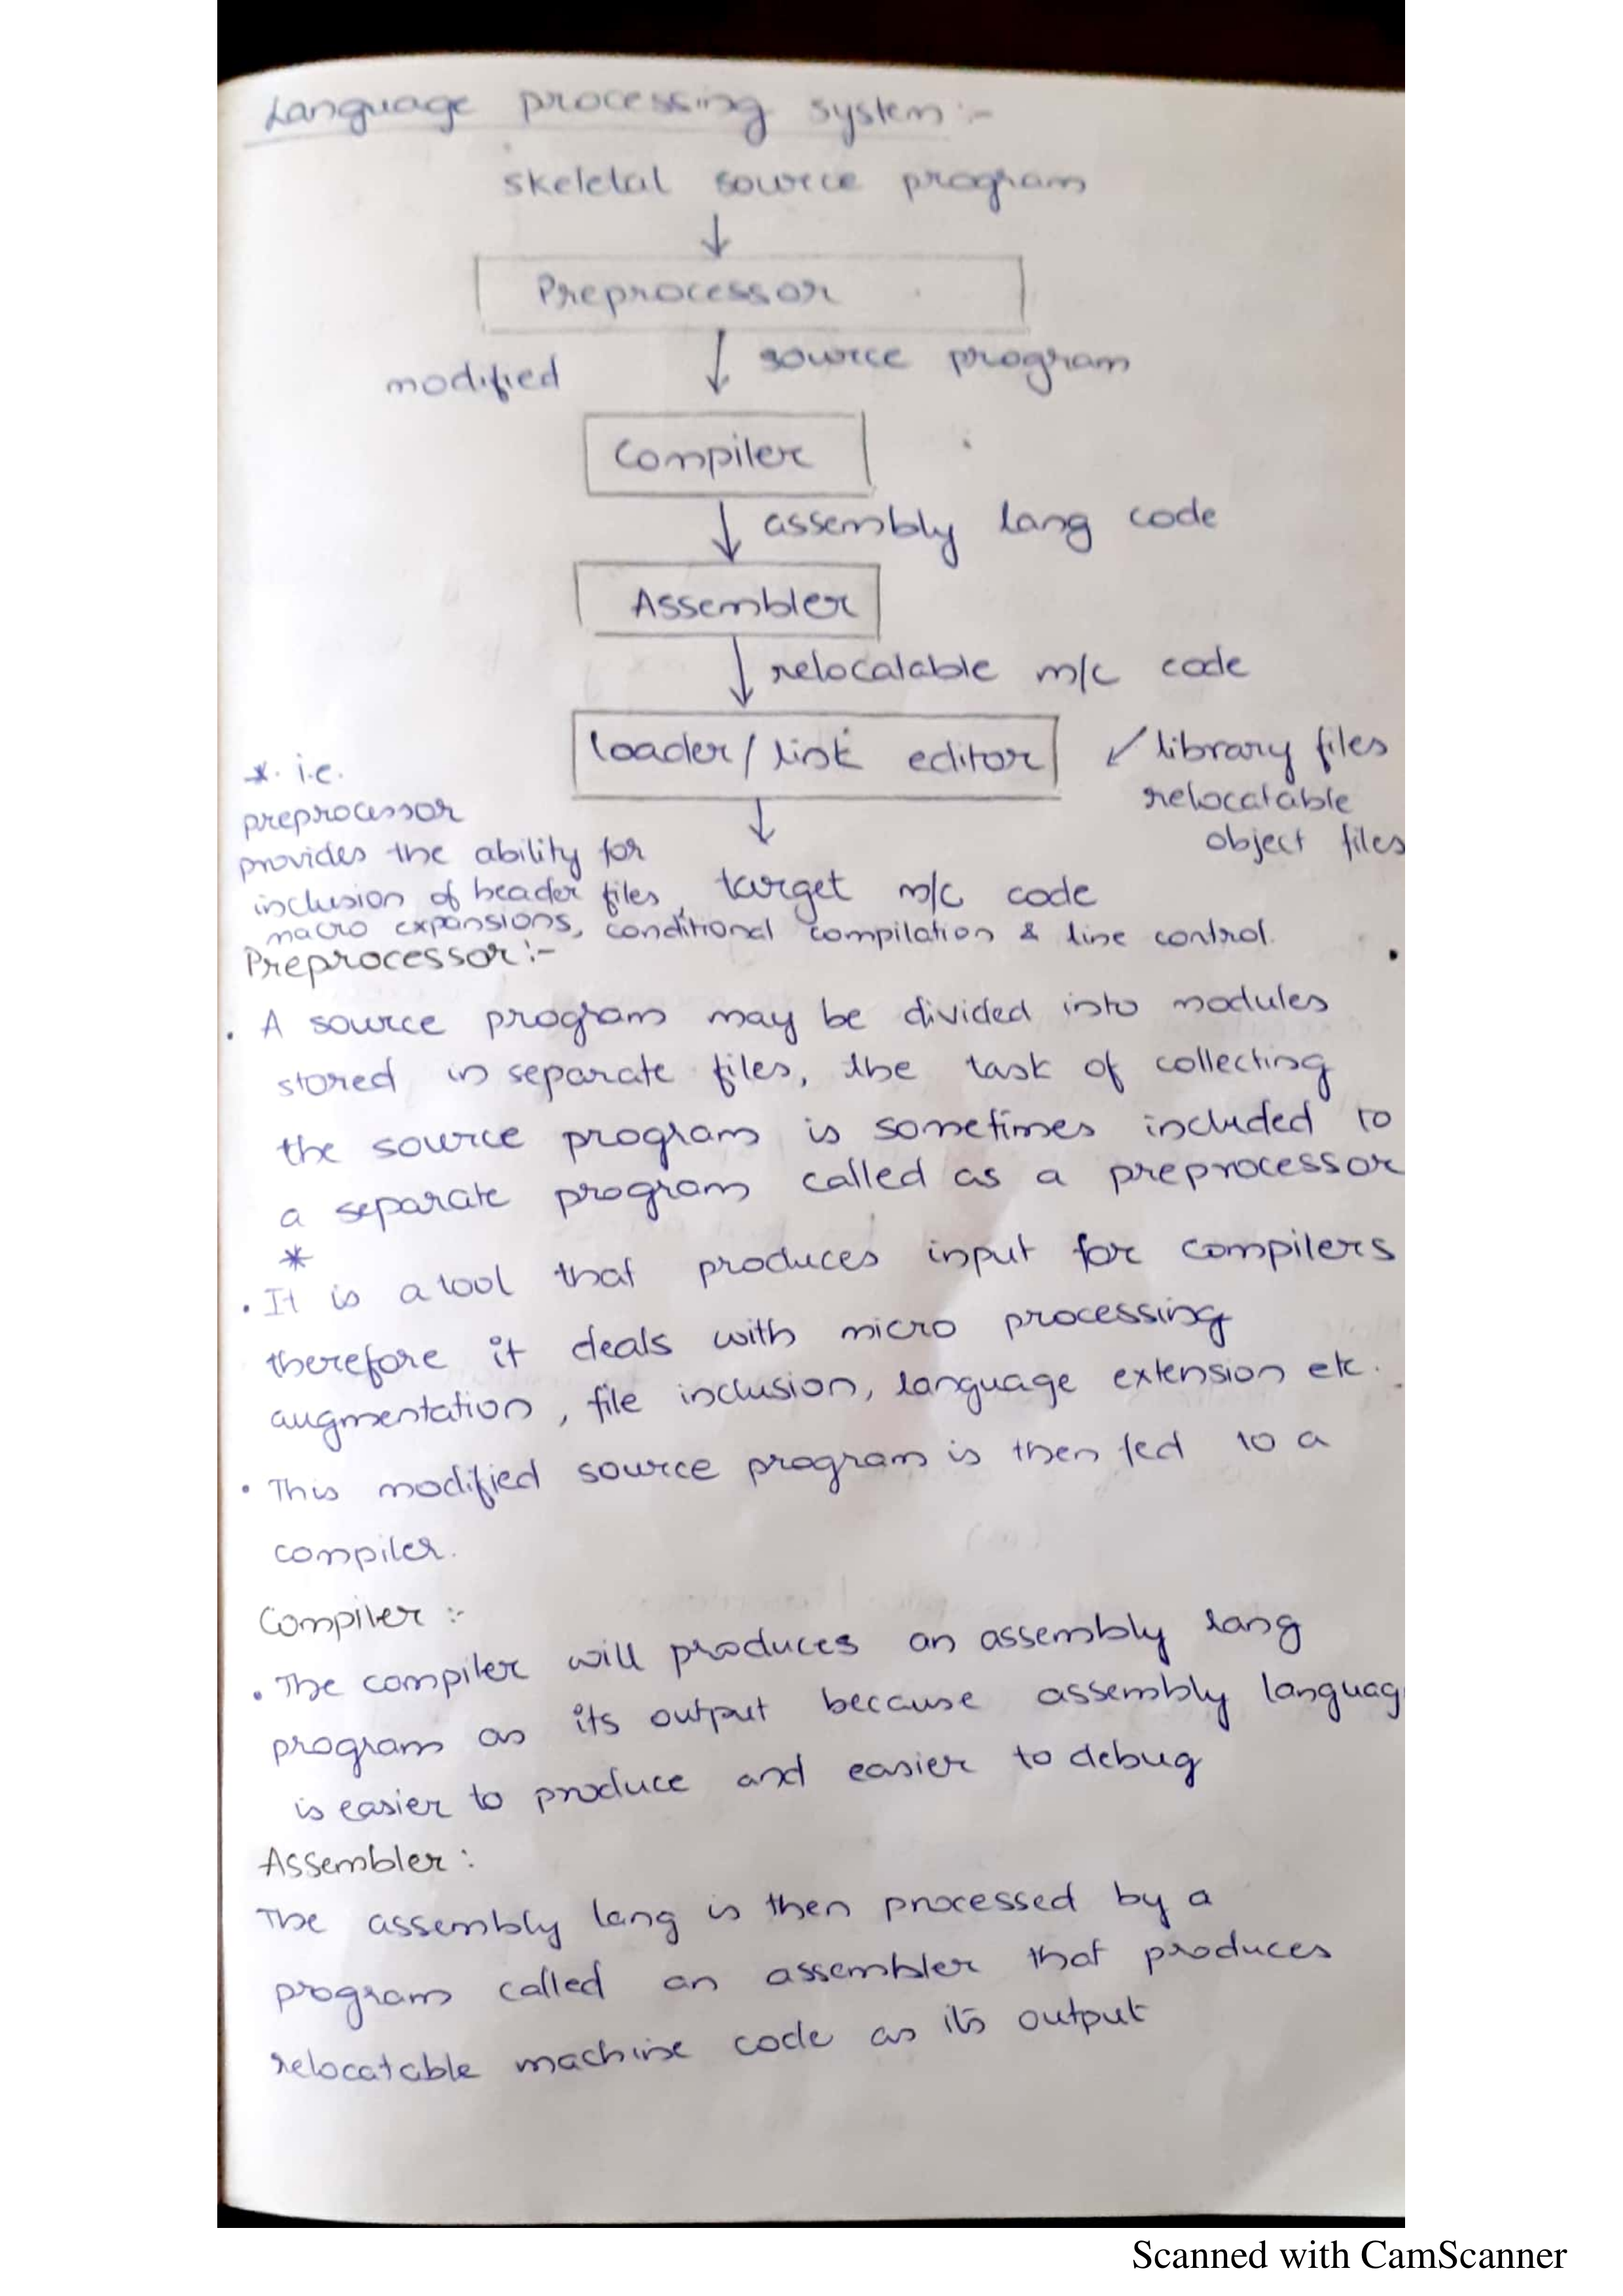 Language processing system :-
skeletal source program
Preprocessor
modified source program
Compiler
assembly lang code
Assembler
relocalable m/c code
loader/link editor
library files
relocatable
object files
target m/c code
* i.e.
preprocessor
provides the ability for
inclusion of header files,
macro expansions, conditional compilation & line control.
Preprocessor :-
. A source program may be divided into modules
stored in separate files, the task of collecting
the source program is sometimes included to
a separate program called as a preprocessor
*
. It is a tool that produces input for compilers
therefore it deals with micro processing
augmentation, file inclusion, language extension etc.
. This modified source program is then fed to a
compiler.
Compiler :-
. The compiler will produces an assembly lang
program as its output because assembly languag
is easier to produce and easier to debug
Assembler :
The assembly lang is then processed by a
program called an assembler that produces
relocatable machine code as its output
Scanned with CamScanner